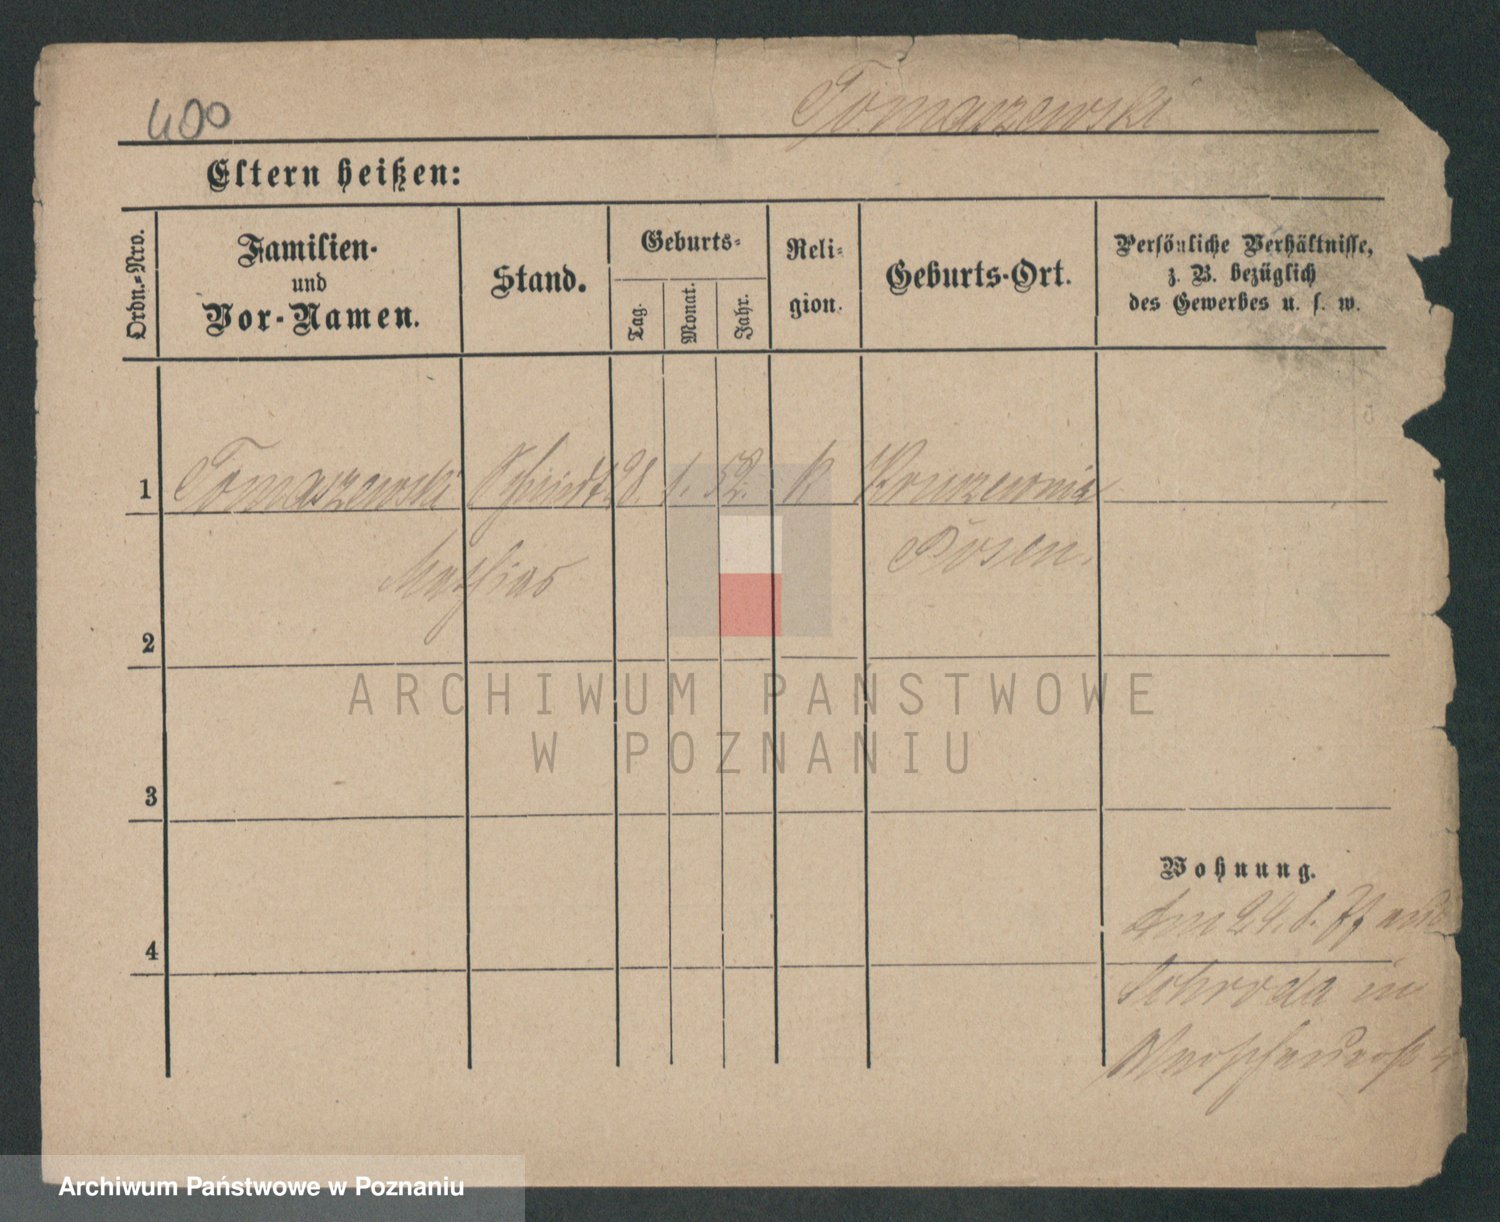 400
Tomaszewski
Eltern heißen:
Ordn.-Nro.
Familien-
und
Vor-Namen.
Stand.
Geburts-
Tag.
Monat.
Jahr.
Reli-
gion.
Geburts-Ort.
Persönliche Verhältnisse,
z. B. bezüglich
des Gewerbes u. s. w.
1
Tomaszewski
28. 1. 52. K
Mathias
Posen.
2
3
4
Wohnung.
Am 24. 8. 77 aus
Schroda in
ARCHIWUM PAŃSTWOWE
W POZNANIU
Archiwum Państwowe w Poznaniu